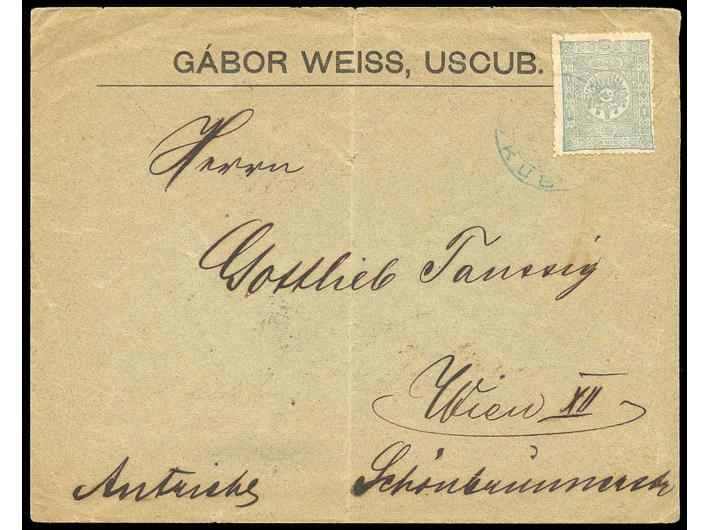 GÁBOR WEISS, USCUB.
KÜB
Herrn
Gottlieb Taussig
Wien XII
Autriche Schönbrunnerstr